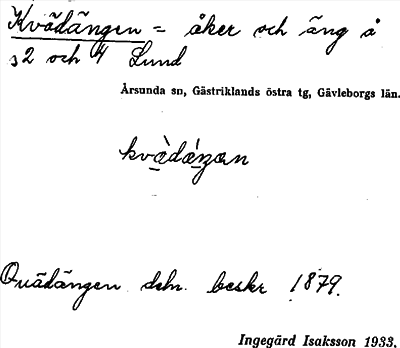 Kvädängen = åker och äng å
s2 och 4 Lund
Årsunda sn, Gästriklands östra tg, Gävleborgs län.
Quädängen dehn. beskr 1879.
Ingegärd Isaksson 1933.